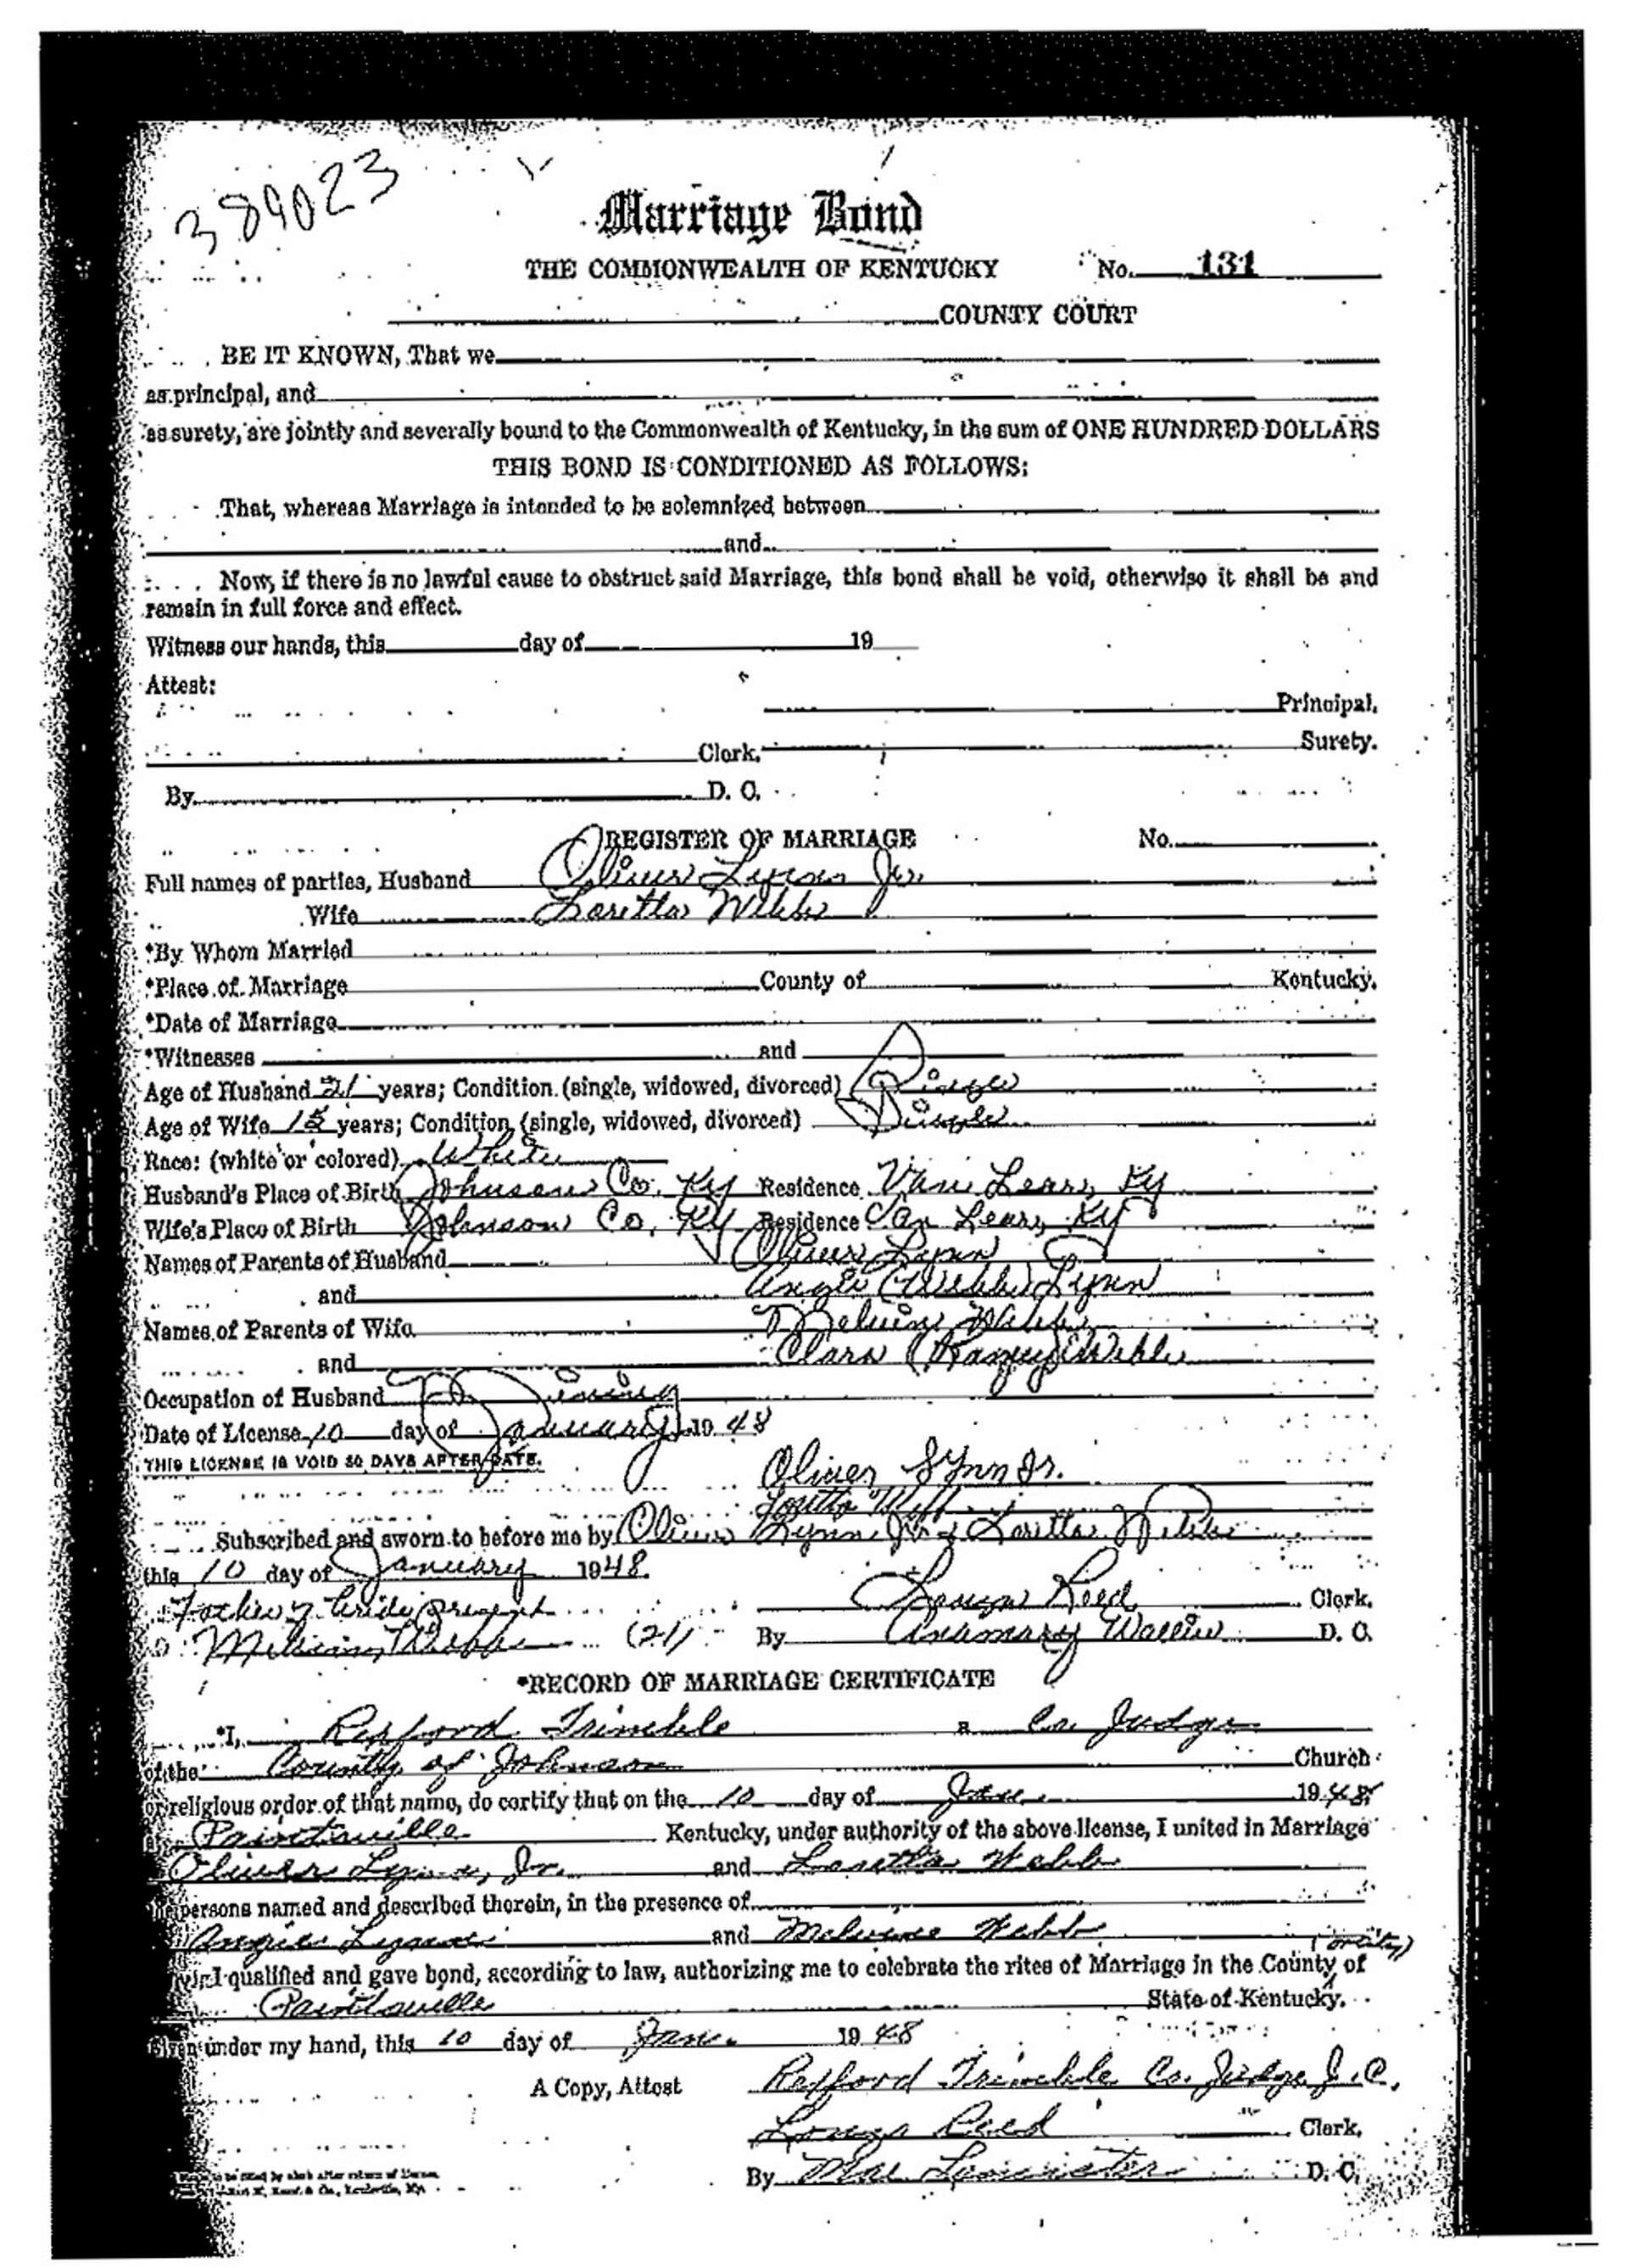 389023
Marriage Bond
THE COMMONWEALTH OF KENTUCKY No. 131
COUNTY COURT
BE IT KNOWN, That we
as principal, and
as surety, are jointly and severally bound to the Commonwealth of Kentucky, in the sum of ONE HUNDRED DOLLARS
THIS BOND IS CONDITIONED AS FOLLOWS:
That, whereas Marriage is intended to be solemnized between
and
Now, if there is no lawful cause to obstruct said Marriage, this bond shall be void, otherwise it shall be and
remain in full force and effect.
Witness our hands, this day of 19
Attest:
Principal.
Clerk. Surety.
By D. C.
REGISTER OF MARRIAGE No.
Full names of parties, Husband Oliver Lynn Jr.
Wife Loretta Webb
*By Whom Married
*Place of Marriage County of Kentucky.
*Date of Marriage
*Witnesses and
Age of Husband 21 years; Condition (single, widowed, divorced) Single
Age of Wife 15 years; Condition (single, widowed, divorced) Single
Race: (white or colored) White
Husband's Place of Birth Johnson Co, Ky Residence Van Lear, Ky
Wife's Place of Birth Johnson Co, Ky Residence Van Lear, Ky
Names of Parents of Husband Oliver Lynn
and Angie (Webb) Lynn
Names of Parents of Wife Melvin Webb
and Clara (Ramey) Webb
Occupation of Husband Mining
Date of License 10 day of January 1948
THIS LICENSE IS VOID 30 DAYS AFTER DATE.
Oliver Lynn Jr.
Loretta Webb
Subscribed and sworn to before me by Oliver Lynn Jr & Loretta Webb
this 10 day of January 1948.
Father of bride present Reed Clerk.
Melvin Webb (21) By D. C.
*RECORD OF MARRIAGE CERTIFICATE
*I, Rexford Trimble a Co. Judge
of the County of Johnson Church
or religious order of that name, do certify that on the 10 day of Jan. 1948
Paintsville Kentucky, under authority of the above license, I united in Marriage
Oliver Lynn, Jr. and Loretta Webb
persons named and described therein, in the presence of
Angie Lynn and Melvin Webb
qualified and gave bond, according to law, authorizing me to celebrate the rites of Marriage in the County of (or city)
Paintsville State of Kentucky.
Given under my hand, this 10 day of Jan. 1948
A Copy, Attest Rexford Trimble Co. Judge J.C.
Reed Clerk.
By D. C.